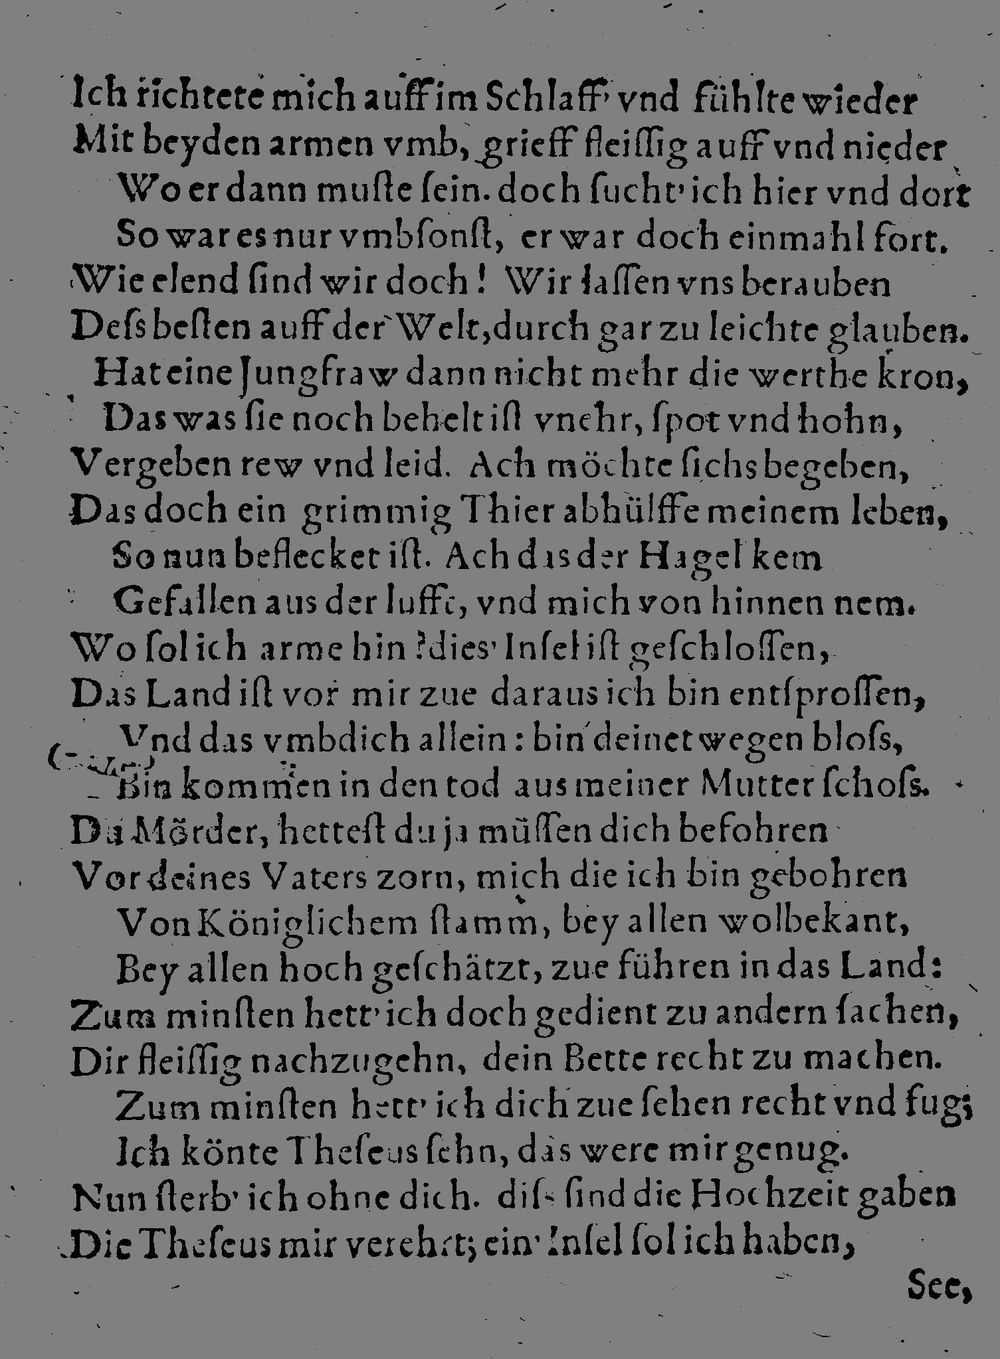 Ich richtete mich auff im Schlaff' vnd fühlte wieder
Mit beyden armen vmb, grieff fleiſſig auff vnd nieder
Wo er dann muſte ſein. doch ſucht' ich hier vnd dort
So war es nur vmbſonſt, er war doch einmahl fort.
Wie elend ſind wir doch! Wir laſſen vns berauben
Deſs beſten auff der Welt, durch gar zu leichte glauben.
Hat eine Jungfraw dann nicht mehr die werthe kron,
Das was ſie noch behelt iſt vnehr, ſpot vnd hohn,
Vergeben rew vnd leid. Ach möchte ſichs begeben,
Das doch ein grimmig Thier abhülffe meinem leben,
So nun beflecket iſt. Ach das der Hagel kem
Gefallen aus der lufft, vnd mich von hinnen nem.
Wo ſol ich arme hin? dies' Inſel iſt geſchloſſen,
Das Land iſt vor mir zue daraus ich bin entſproſſen,
Vnd das vmb dich allein: bin deinetwegen bloſs,
Bin kommen in den tod aus meiner Mutter ſchoſs.
Du Mörder, hetteſt du ja müſſen dich befohren
Vor deines Vaters zorn, mich die ich bin gebohren
Von Königlichem ſtamm, bey allen wolbekant,
Bey allen hoch geſchätzt, zue führen in das Land:
Zum minſten hett' ich doch gedient zu andern ſachen,
Dir fleiſſig nachzugehn, dein Bette recht zu machen.
Zum minſten hett' ich dich zue ſehen recht vnd fug;
Ich könte Theſeus ſehn, das were mir genug.
Nun ſterb' ich ohne dich. diſs ſind die Hochzeit gaben
Die Theſeus mir verehrt; ein' Inſel ſol ich haben,
See,